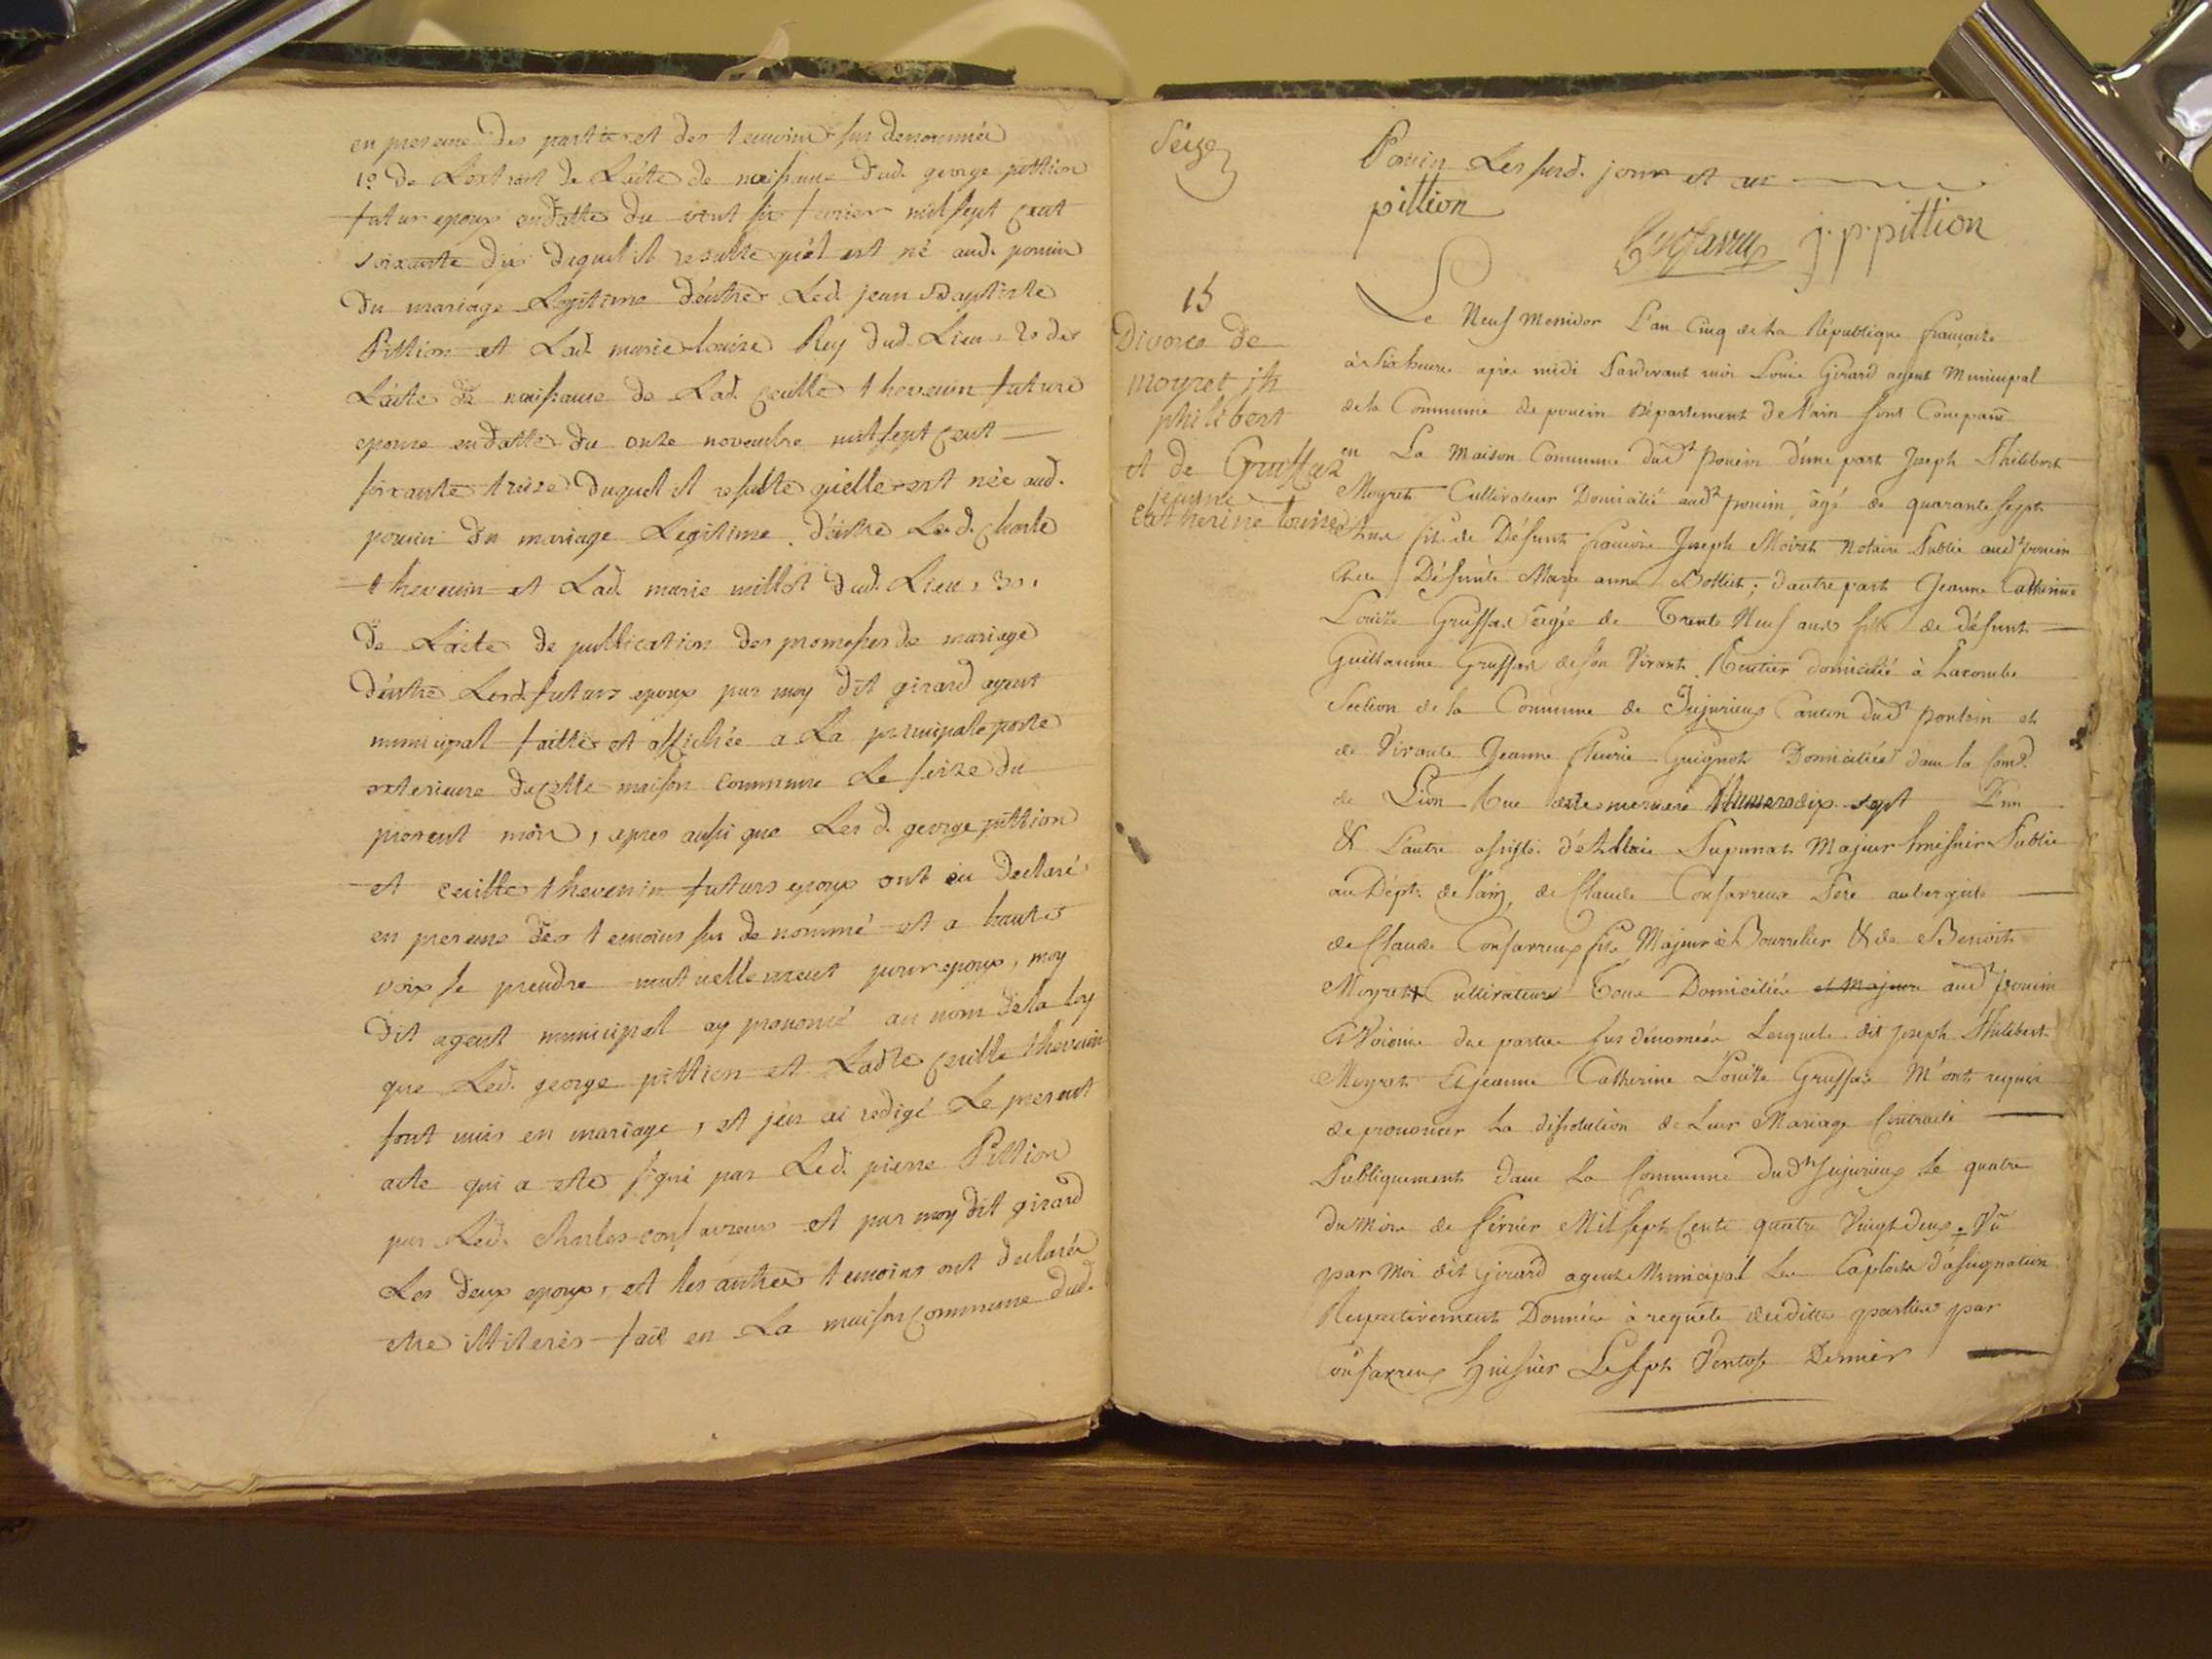 en presence des parties et des temoins sus denommés
1º de L'extrait de L'acte de naissance dud. george pittion
futur epoux en datte du vint six fevrier mil sept cent
soixante dix duquel il resulte qu'il est né aud. poncin
du mariage Legitime d'entre Led. jean Baptiste
Pittion et Lad. marie Louise Rey dud. Lieu, 2º de
L'acte de naissance de Lad. Cecille thevenin future
epouse en datte du onze novembre mil sept cent
soixante treize duquel il resulte qu'elle est née aud.
poncin du mariage Legitime d'entre Led. Charle
thevenin et Lad. marie millot dud. Lieu, 3º
de L'acte de publication des promesses de mariage
d'entre Lesd. futurs epoux par moy dit girard agent
municipal faitte et affichée a La principale porte
exterieure de cette maison commune Le seize du
present mois, apres aussi que Les d. george pittion
et cecille thevenin futurs epoux ont eu declaré
en presence des temoins sus denommé et a haute
voix se prendre mutuellement pour epoux, moy
dit agent municipal ay prononcé au nom de la loy
que Led. george pittion et Ladte Cecille thevenin
sont unis en mariage, et j'en ai redigé Le present
acte qui a eté signé par Led. pierre Pittion
par Led. Charles confavreux et par moy dit girard
Les deux epoux, et les autres temoins ont declarés
etre illiterés fait en La maison commune dud.
Seize
Poncin Les susd. jour et an
pittion
j. p. pittion
15
Divorce de
moyret jh
philibert
et de Gruffaz
jeanne
Catherine Louise
Le Neuf Messidor L'an Cinq de la République française
à Six heures après midi Pardevant moi Louis Girard agent Municipal
de la Commune de poncin Département de l'ain sont Comparu
en La Maison Commune dudt Poncin d'une part Joseph Philibert
Moyret Cultivateur Domicilié audt poncin, âgé de quarante sept
ans fils de Défunt françois Joseph Moiret Notaire Public audt poncin
& de Défunte Marie anne Bottier; d'autre part Jeanne Catherine
Louise Gruffaz agée de Trente Neuf ans fille de défunt
Guillaume Gruffaz de son Vivant Rentier domicilié à Lacombe
Section de la Commune de Jujurieux Canton dudt pontain et
de Vivante Jeanne Guignot Domiciliée dans la Come
de Lion Rue mercière Numero dix sept L'un
& L'autre assistés d'hilaire Supunat Majeur huissier Public
au Dépt. de l'ain, de Claude Confavreux Père aubergiste
de Claude Confavreux fils Majeur Bourrelier & de Benoit
Moyret Cultivateur Tous Domiciliés et Majeurs audt poncin
& Voisins des parties sus dénomées Lesquels dit Joseph Philibert
Moyret et Jeanne Catherine Louise Gruffaz M'ont requis
de prononcer La dissolution de Leur Mariage Contracté
Publiquement dans La Commune dudt Jujurieux Le quatre
du Mois de février Mil Sept Cent quatre Vingt deux. Vu
par Moi dit Girard agent Municipal Les Exploits d'assignation
Respectivement Donnés à requête desdittes parties par
Confavreux huissier Le Sept Ventose Dernier